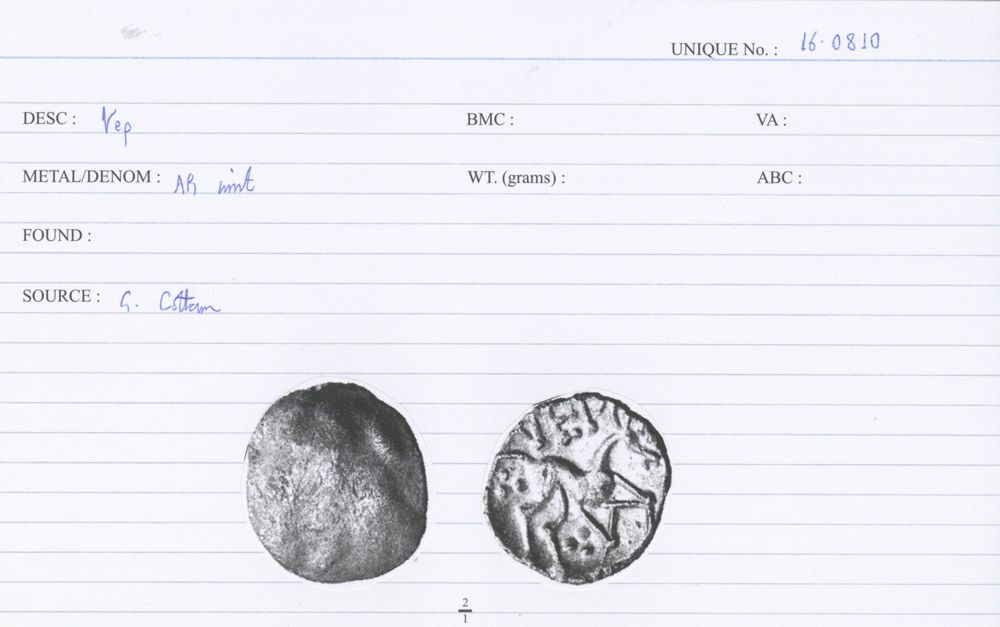 UNIQUE No. : 16.0810
DESC : Vep BMC : VA :
METAL/DENOM : AR unit WT. (grams) : ABC :
FOUND :
SOURCE : G. Cottam
VEP
2
1